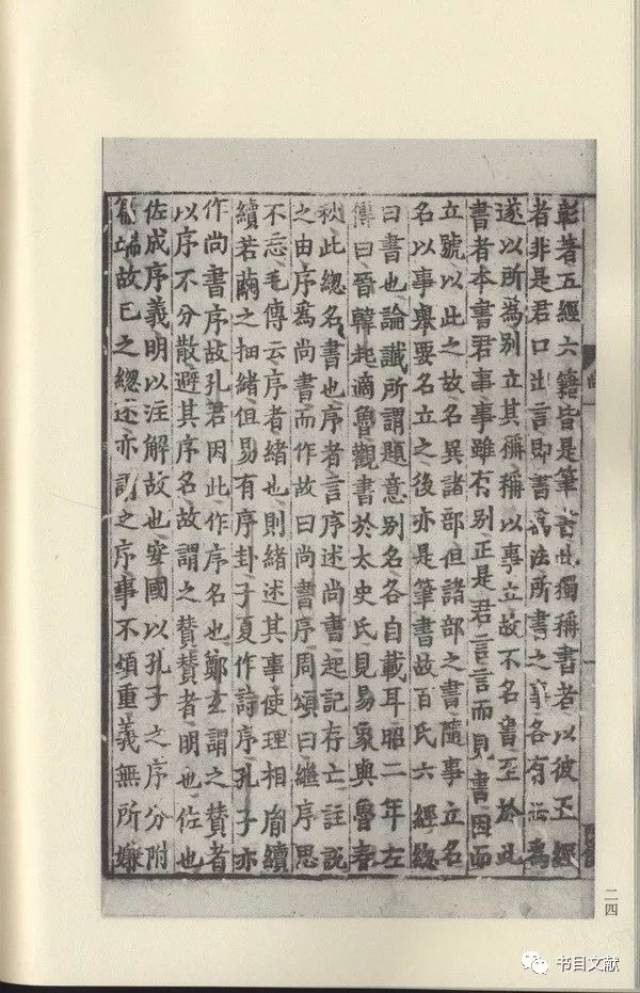 彰著五經六籍皆是筆書此獨稱書者以彼五經
者非是君口出言即書爲法所書之事各有云爲
遂以所爲別立其稱稱以事立故不名書至於此
書者本書君事事雖有別正是君言言而見書因而
立號以此之故名異諸部但諸部之書隨事立名
名以事舉要名立之後亦是筆書故百氏六經緫
曰書也論讖所謂題意別名各自載耳昭二年左
傳曰晉韓起適魯觀書於太史氏見易象與魯春
秋此緫名書也序者言序述尚書起記存亡註説
之由序爲尚書而作故曰尚書序周頌曰繼序思
不忘毛傳云序者緒也則緒述其事使理相胤續
續若繭之抽緒但易有序卦子夏作詩序孔子亦
作尚書序故孔君因此作序名也鄭玄謂之賛者
以序不分散避其序名故謂之賛賛者明也佐也
佐成序義明以注解故也安國以孔子之序分附
篇端故已之緫述亦謂之序事不煩重義無所嫌
二四
书目文献